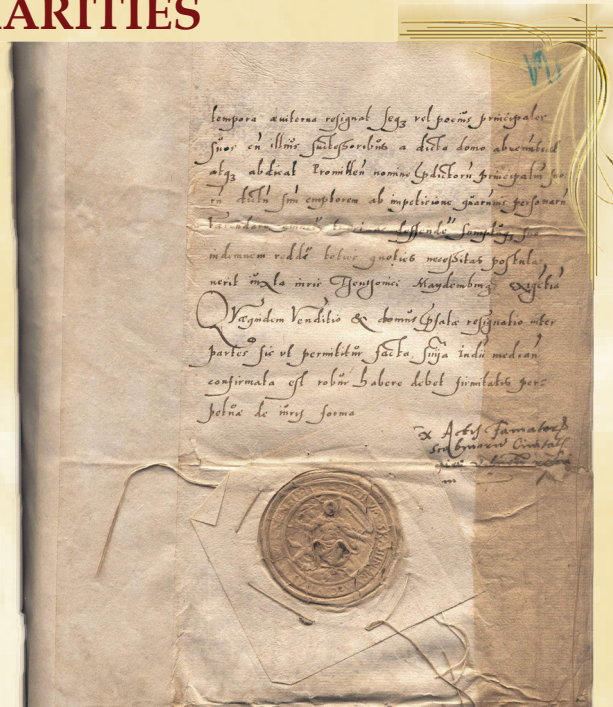 ARITIES
tempora æuiterna resignat seqʒ vel pocius principales
suos cū illius successoribus a dicta domo
atqʒ abdicat Promittēn nomine p̄dictorū principaliū suo
rū dictū suū emptorem ab impeticione quarumc personarū
deffende sumptibqʒ suis
indemnem reddē toties quoties necessitas postula
uerit iuxta iuris Theutonici Maydemburgē exigētiā
Quæquidem Venditio & domus p̄fatæ resignatio inter
partes sic vt permittitur facta
confirmata est robur habere debet firmitatis per-
petuæ de iuris forma
Ex Actis famatorū
Scabinorū Ciuitatis